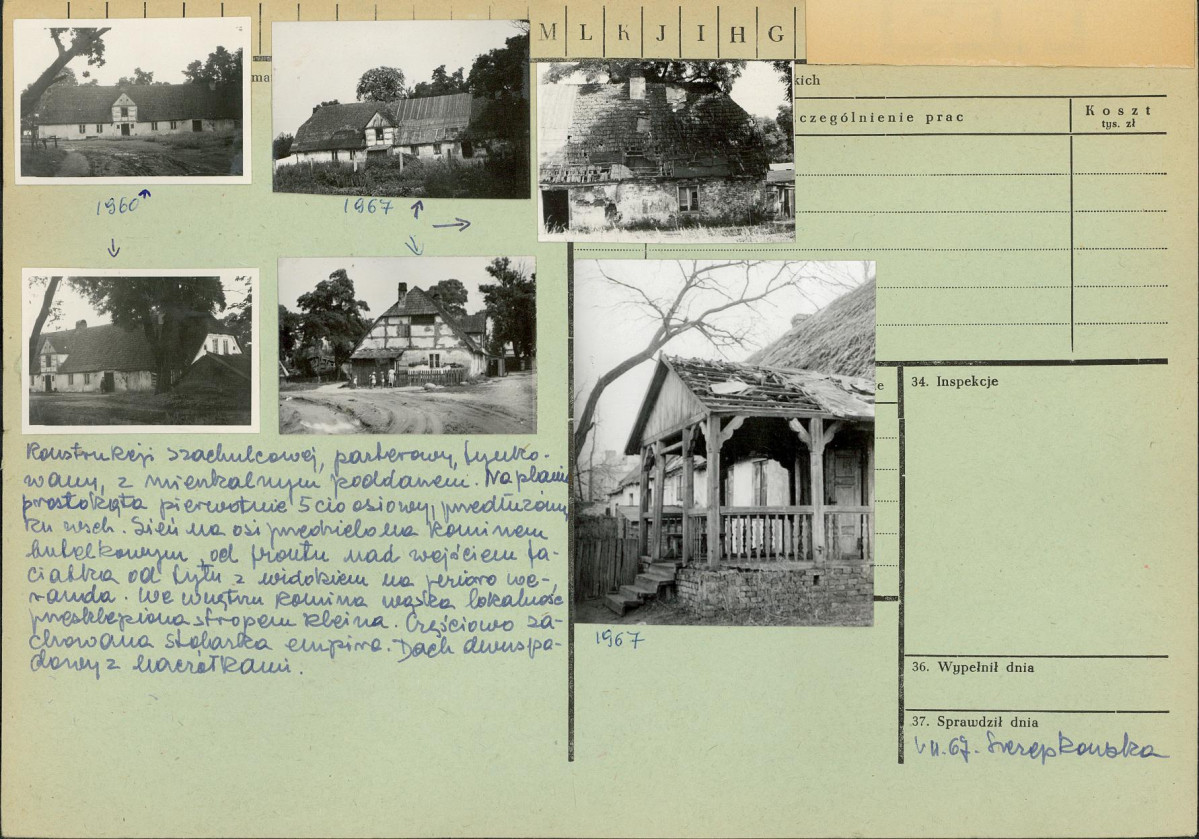 M L K J I H G
ma
kich
czególnienie prac
Koszt
tys. zł
1960
1967
e
34. Inspekcje
Konstrukcji szachulcowej, parterowy, tynko-
wany, z mieszkalnym poddaszem. Na planie
prostokąta pierwotnie 5cio osiowy, przedłużony
ku wsch. Sień na osi przedzielona kominem
butelkowym, od frontu nad wejściem fa-
ciatka od tyłu z widokiem na jezioro we-
randa. We wnętrzu komina wąska lokalność
przesklepiona stropem kleina. Częściowo za-
chowana stolarka empire. Dach dwuspa-
dowy z naczółkami.
1967
36. Wypełnił dnia
37. Sprawdził dnia
67. Szczepkowska